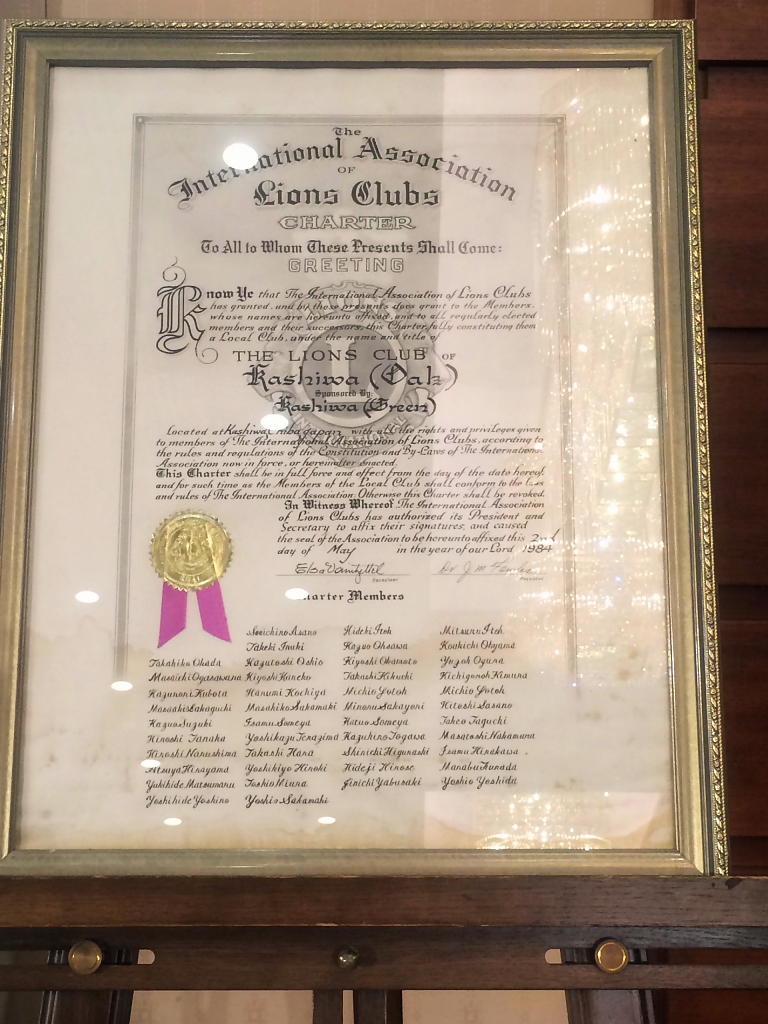 The
International Association
OF
Lions Clubs
CHARTER
To All to Whom These Presents Shall Come:
GREETING
Know Ye that The International Association of Lions Clubs
has granted, and by these presents does grant to the Members,
whose names are hereunto affixed, and to all regularly elected
members and their successors, this Charter fully constituting them
a Local Club, under the name and title of
THE LIONS CLUB OF
Kashiwa (Oak)
Sponsored By:
Kashiwa (Green)
Located at Kashiwa, Chiba Japan, with all the rights and privileges given
to members of The International Association of Lions Clubs, according to
the rules and regulations of the Constitution and By-Laws of The International
Association now in force, or hereinafter enacted.
This Charter shall be in full force and effect from the day of the date hereof,
and for such time as the Members of the Local Club shall conform to the laws
and rules of The International Association. Otherwise this Charter shall be revoked.
In Witness Whereof The International Association
of Lions Clubs has authorized its President and
Secretary to affix their signatures, and caused
the seal of the Association to be hereunto affixed this 2nd
day of May in the year of our Lord 1984
Secretary President
Charter Members
Seiichiro Asano Hideki Itoh Mitsuru Itoh
Takeki Inuki Kazuo Ohsawa Koukichi Ohyama
Takahiko Okada Kazutoshi Oshio Kiyoshi Okamoto Yuzoh Oguna
Masaichi Ogasawara Kiyoshi Kaneko Takashi Kikuchi Kichigoroh Kimura
Kazunori Kubota Harumi Kochiya Michio Gotoh Michio Gotoh
Masaaki Sakaguchi Masahiko Sakamaki Minoru Sakayori Hitoshi Sasano
Kazuo Suzuki Isamu Someya Katuo Someya Takeo Taguchi
Hiroshi Tanaka Yoshikazu Terazima Kazuhiro Togawa Masatoshi Nakamura
Hiroshi Narushima Takashi Hara Shinichi Higurashi Isamu Hirakawa
Atsuya Hirayama Yoshikiyo Hiroki Hideji Hirose Manabu Funada
Yukihide Matsumaru Toshio Miura Jinichi Yabusaki Yoshio Yoshida
Yoshihide Yoshino Yoshio Sakamaki